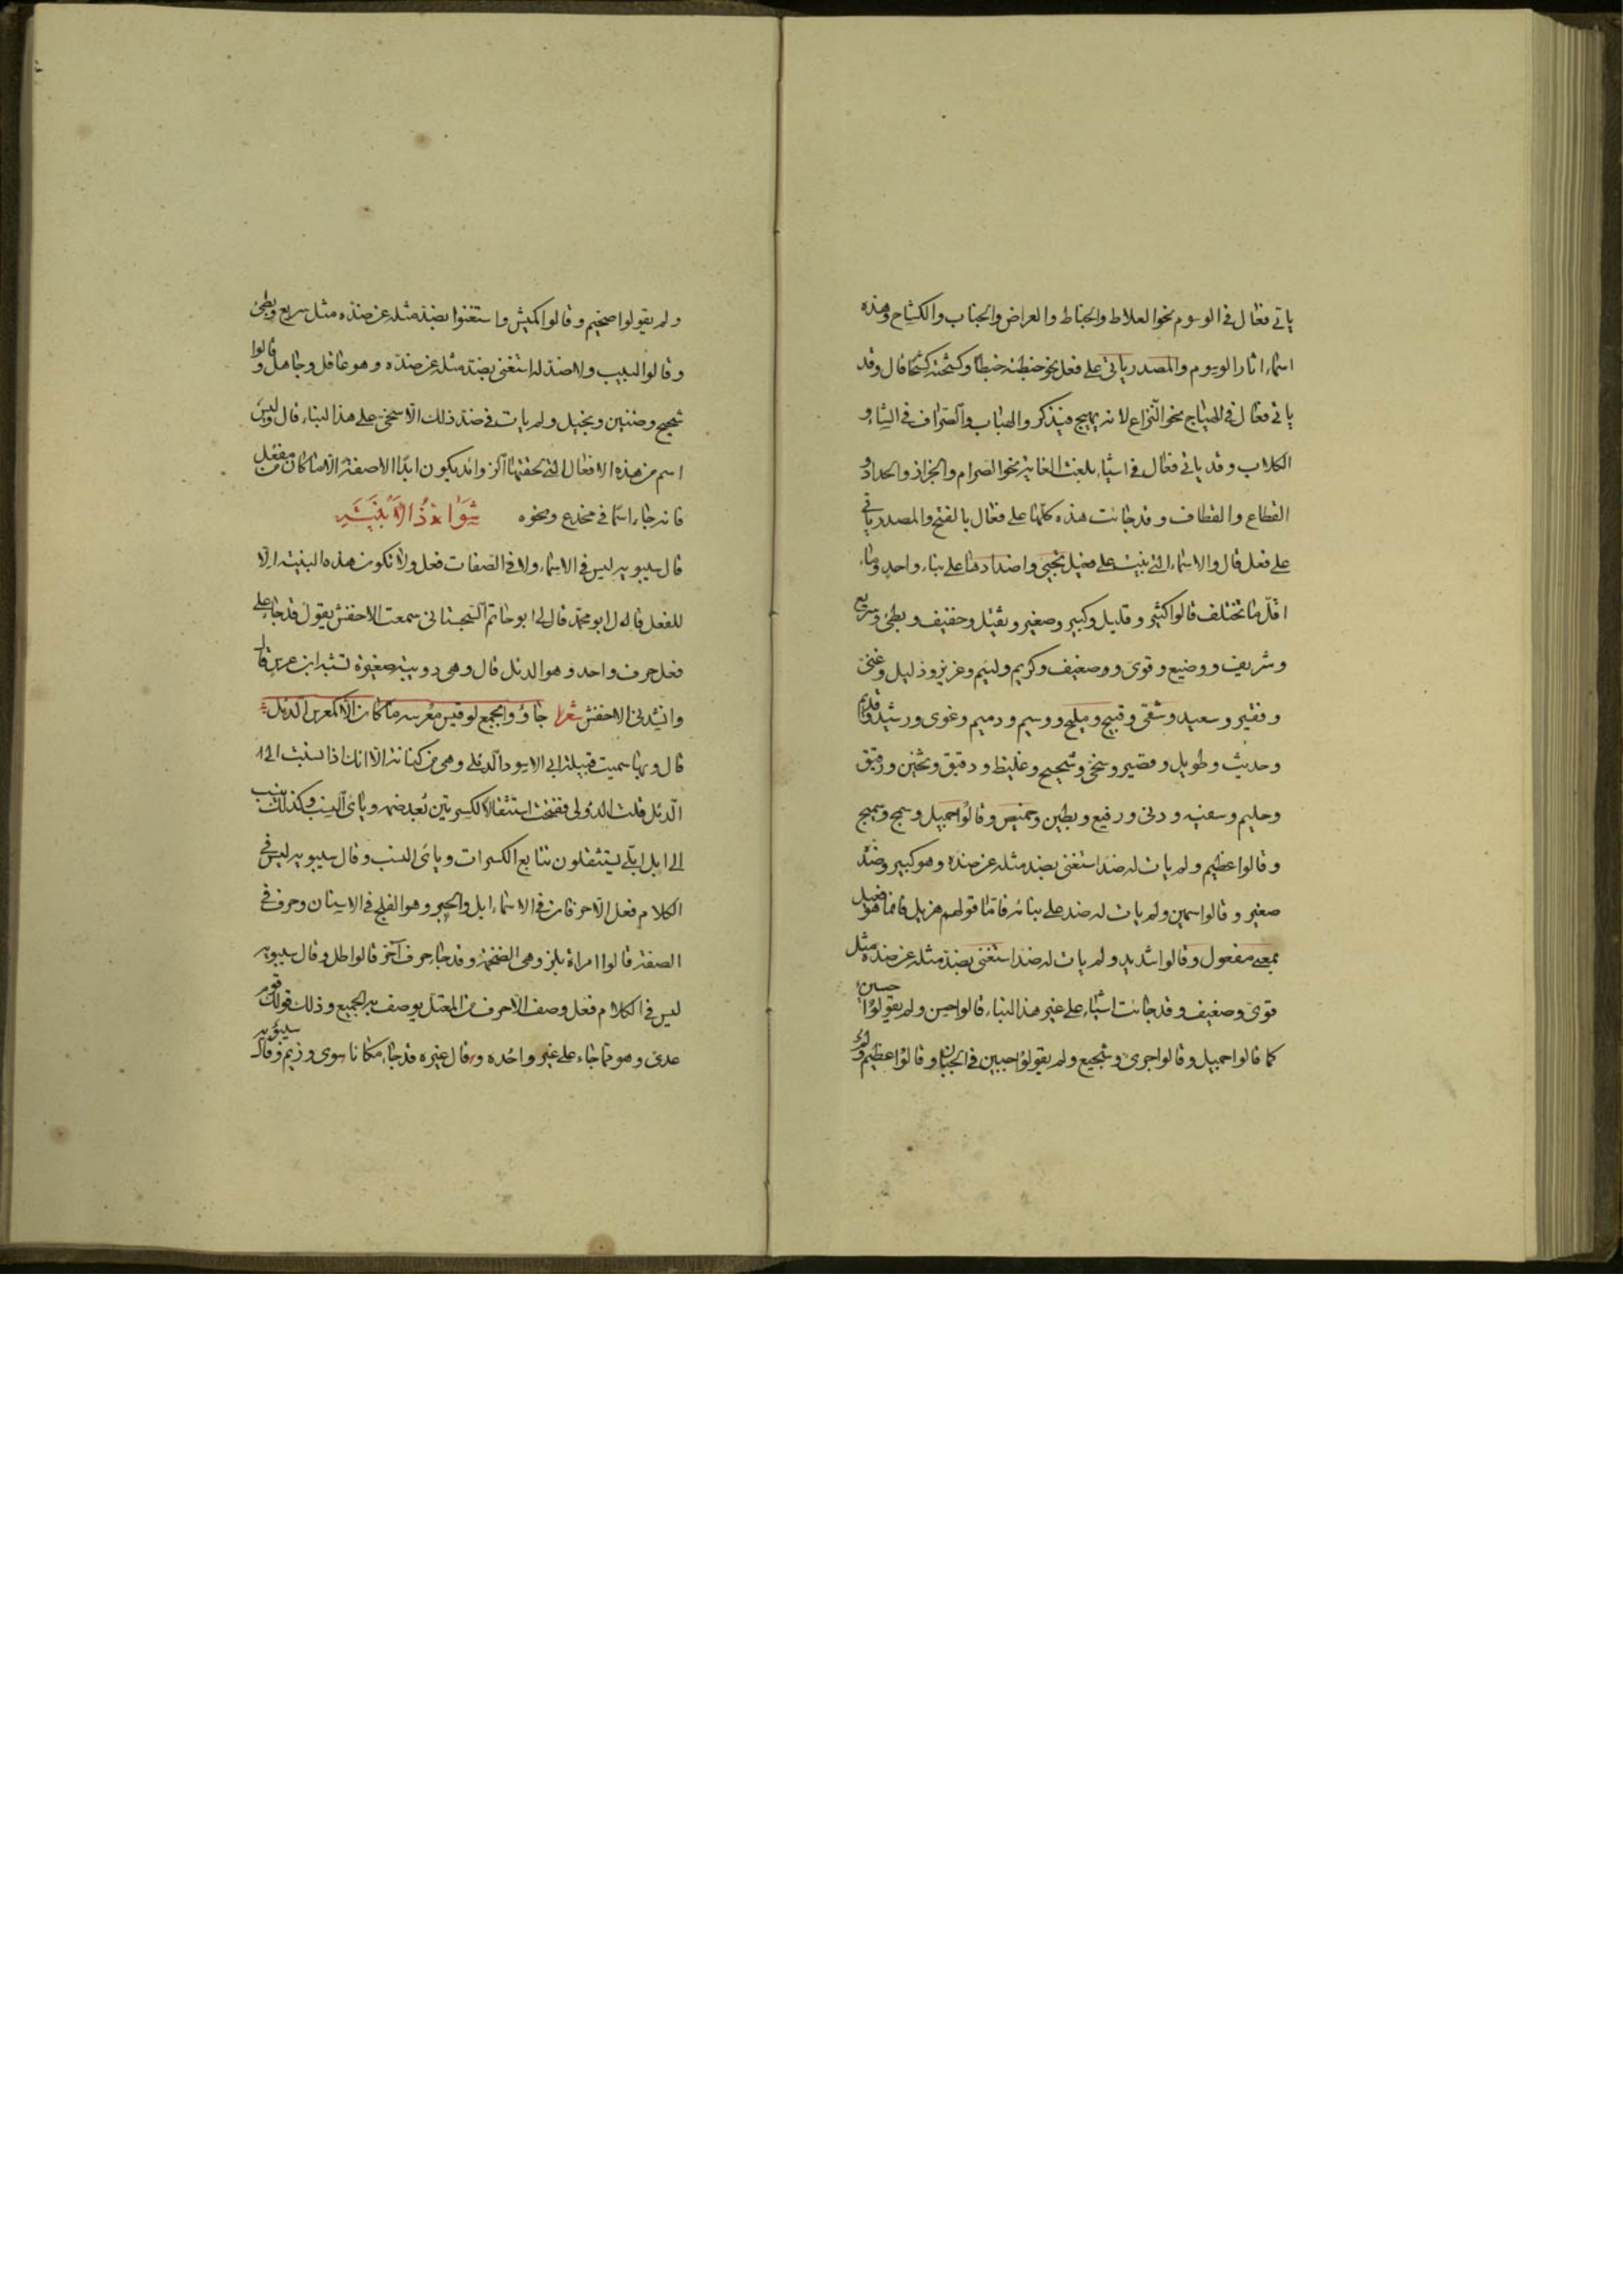 ياتى فعال فى الوسوم نحو العلاط والخباط والعراض والجناب والكشاح وهذه
اسماء اثار الوسوم والمصدر ياتى على فعل نحو خبطته خبطا وكشحته كشحا قال وقد
ياتى فعال فى الهياج نحو النزاع لانه يهيج فيذكر والهباب والصراف فى الشاء و
الكلاب وقد ياتى فعال فى اشياء بلغت الغاية نحو الصرام والجزاز والحداد و
القطاع والقطاف وقد جاءت هذه كلها على فعال بالفتح والمصدر ياتى
على فعل قال والاسماء التى بنيت على فعيل تجيى واضدادها على بناء واحد وما
اقل ما تختلف قالوا كثير وقليل وكبير وصغير وثقيل وخفيف وبطئ وسريع
وشريف ووضيع وقوى وضعيف وكريم ولئيم وعزيز وذليل وغنى
وفقير وسعيد وشقى وقبيح ومليح ووسيم ودميم وغوى ورشيد وقديم
وحديث وطويل وقصير وسخى وشحيح وغليظ ودقيق وثخين ورقيق
وحليم وسفيه ودنى ورفيع وبطين وخميص وقالوا جميل وسمج وسميج
وقالوا عظيم ولم يات له ضد استغنى بضد مثله عن ضده وهو كبير وضده
صغير وقالوا سمين ولم يات له ضد على بنائه فاما قولهم هزيل فانما هو فعيل
بمعنى مفعول وقالوا شديد ولم يات له ضد استغنى بضد مثله عن ضده مثل
قوى وضعيف وقد جاءت اشياء على غير هذا البناء قالوا حسن ولم يقولوا حسين
كما قالوا جميل وقالوا جرى وشجيع ولم يقولوا جبين فى الجبان وقالوا عظيم
ولم يقولوا ضخيم وقالوا كميش واستغنوا بضد مثله عن ضده مثل سريع وبطئ
وقالوا لبيب ولا ضد له استغنى بضد مثله عن ضده وهو عاقل وجاهل وقالوا
شحيح وضنين وبخيل ولم يات فى ضد ذلك الا سخى على هذا البناء قال وليس
اسم من هذه الافعال التى لحقتها الزوائد يكون ابدا الا صفة الا ما كان من مفعل
فانه جاء اسما فى مخدع ونحوه شواذ الابنية
قال سيبويه ليس فى الاسماء ولا فى الصفات فعل ولا تكون هذه البنية الا
للفعل قال ابو محمد قال لى ابو حاتم السجستانى سمعت الاخفش يقول قد جاء على
فعل حرف واحد وهو الدئل قال وهى دويبة صغيرة تشبه ابن عرس قال
وانشدنى الاخفش شعرا جاؤا بجمع لو قيس معرسه ما كان الا كمعرس الدئل
قال وبها سميت قبيلة ابى الاسود الدئلى وهى من كنانة الا انك اذا نسبت الى
الدئل قلت الدؤلى ففتحت استثقالا لكسرتين بعد ضمه وياى النسب وكذلك ينسب
الى ابل ابلى يستثقلون تتابع الكسرات وياى النسب وقال سيبويه ليس فى
الكلام فعل الا حرفان فى الاسماء ابل والحبر وهو القلح فى الاسنان وحرف فى
الصفة قالوا امراة بلز وهى الضخمة وقد جاء حرف آخر قالوا اطل وقال سيبويه
ليس فى الكلام فعل وصف الا حرف من المعتل يوصف به الجميع وذلك قولك قوم
عدى وهو مما جاء على غير واحده وقال غيره قد جاء مكانا سوى وزيم وقال سيبويه